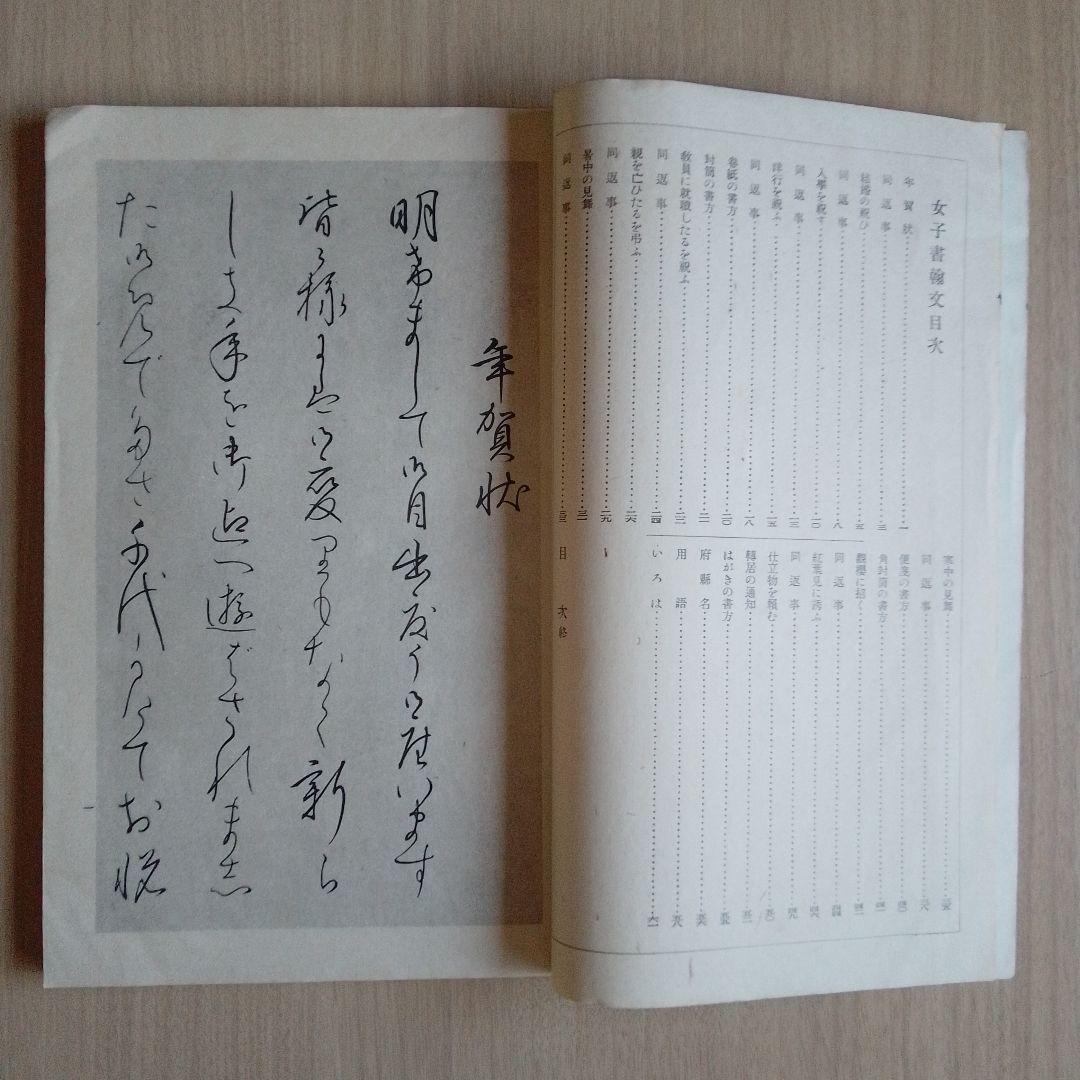 女子書翰文目次
年賀狀……一
同返事……三
結婚の祝ひ……五
同返事……八
入學を祝す……一〇
同返事……一三
洋行を祝ふ……一五
同返事……一八
卷紙の書方……二〇
封筒の書方……二一
敎員に就職したるを祝ふ……二二
同返事……二四
親を亡ひたるを弔ふ……二六
同返事……二九
暑中の見舞……三一
同返事……三三
寒中の見舞
同返事
便箋の書方……四〇
角封筒の書方……四一
觀櫻に招く……四二
同返事……四四
紅葉見に誘ふ……四六
同返事……四九
仕立物を賴む……五〇
轉居の通知
はがきの書方
府縣名
用語……五八
いろは……六一
目次終
年賀狀
明けまして御目出度う御座います
皆々様には御變りもなく新ら
しき年を御迎へ遊ばされまし
た お悦
一